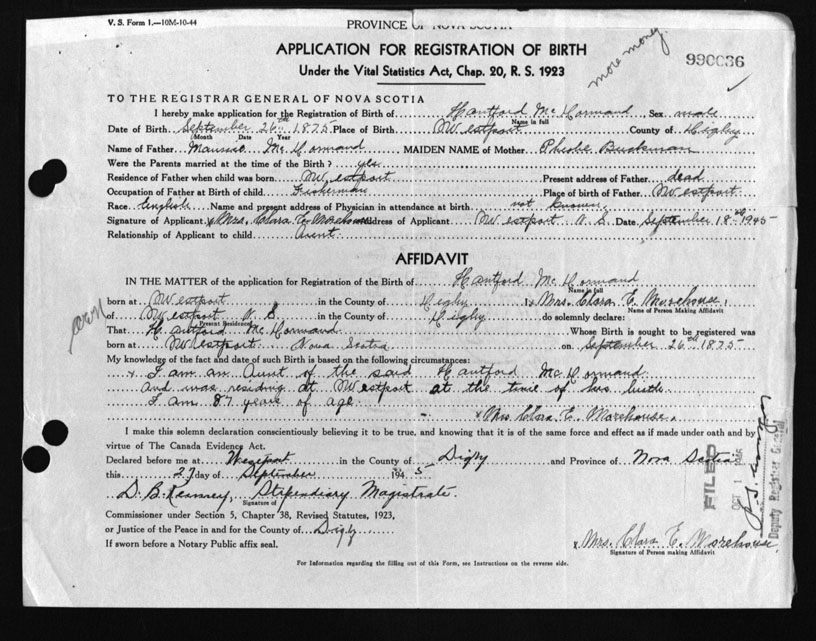 V. S. Form 1.—10M-10-44
PROVINCE OF NOVA SCOTIA
more money
990036
APPLICATION FOR REGISTRATION OF BIRTH
Under the Vital Statistics Act, Chap. 20, R. S. 1923
TO THE REGISTRAR GENERAL OF NOVA SCOTIA
I hereby make application for the Registration of Birth of Hantford McDormand Sex male
Name in full
Date of Birth September 26th 1875 Place of Birth Westport County of Digby
(Month Date Year
Name of Father Maurice McDormand MAIDEN NAME of Mother Pheobe
Were the Parents married at the time of the Birth? yes
Residence of Father when child was born Westport Present address of Father dead
Occupation of Father at Birth of child Fisherman Place of birth of Father Westport
Race English Name and present address of Physician in attendance at birth not known
Signature of Applicant x Mrs. Clara E. Morehouse Address of Applicant Westport N. S. Date September 18th 1945
Relationship of Applicant to child Aunt.
AFFIDAVIT
IN THE MATTER of the application for Registration of the Birth of Hantford McDormand
Name in full
born at Westport in the County of Digby I x Mrs. Clara E. Morehouse,
Name of Person Making Affidavit
of Westport N. S. in the County of Digby do solemnly declare:
Present Residence
That Hantford McDormand Whose Birth is sought to be registered was
born at Westport Nova Scotia on September 26th 1875
My knowledge of the fact and date of such Birth is based on the following circumstances:
x I am an Aunt of the said Hantford McDormand
and was residing at Westport at the time of his birth.
I am 87 years of age.
x Mrs. Clara E. Morehouse.
I make this solemn declaration conscientiously believing it to be true, and knowing that it is of the same force and effect as if made under oath and by
virtue of The Canada Evidence Act.
Declared before me at Westport in the County of Digby and Province of Nova Scotia
this 27 day of September 1945
D. B. Kenney, Stipendiary Magistrate.
Signature of
Commissioner under Section 5, Chapter 38, Revised Statutes, 1923,
or Justice of the Peace in and for the County of Digby
If sworn before a Notary Public affix seal.
x Mrs. Clara E. Morehouse.
Signature of Person making Affidavit
FILED
OCT 1
Deputy Registrar General
For Information regarding the filling out of this Form, see Instructions on the reverse side.